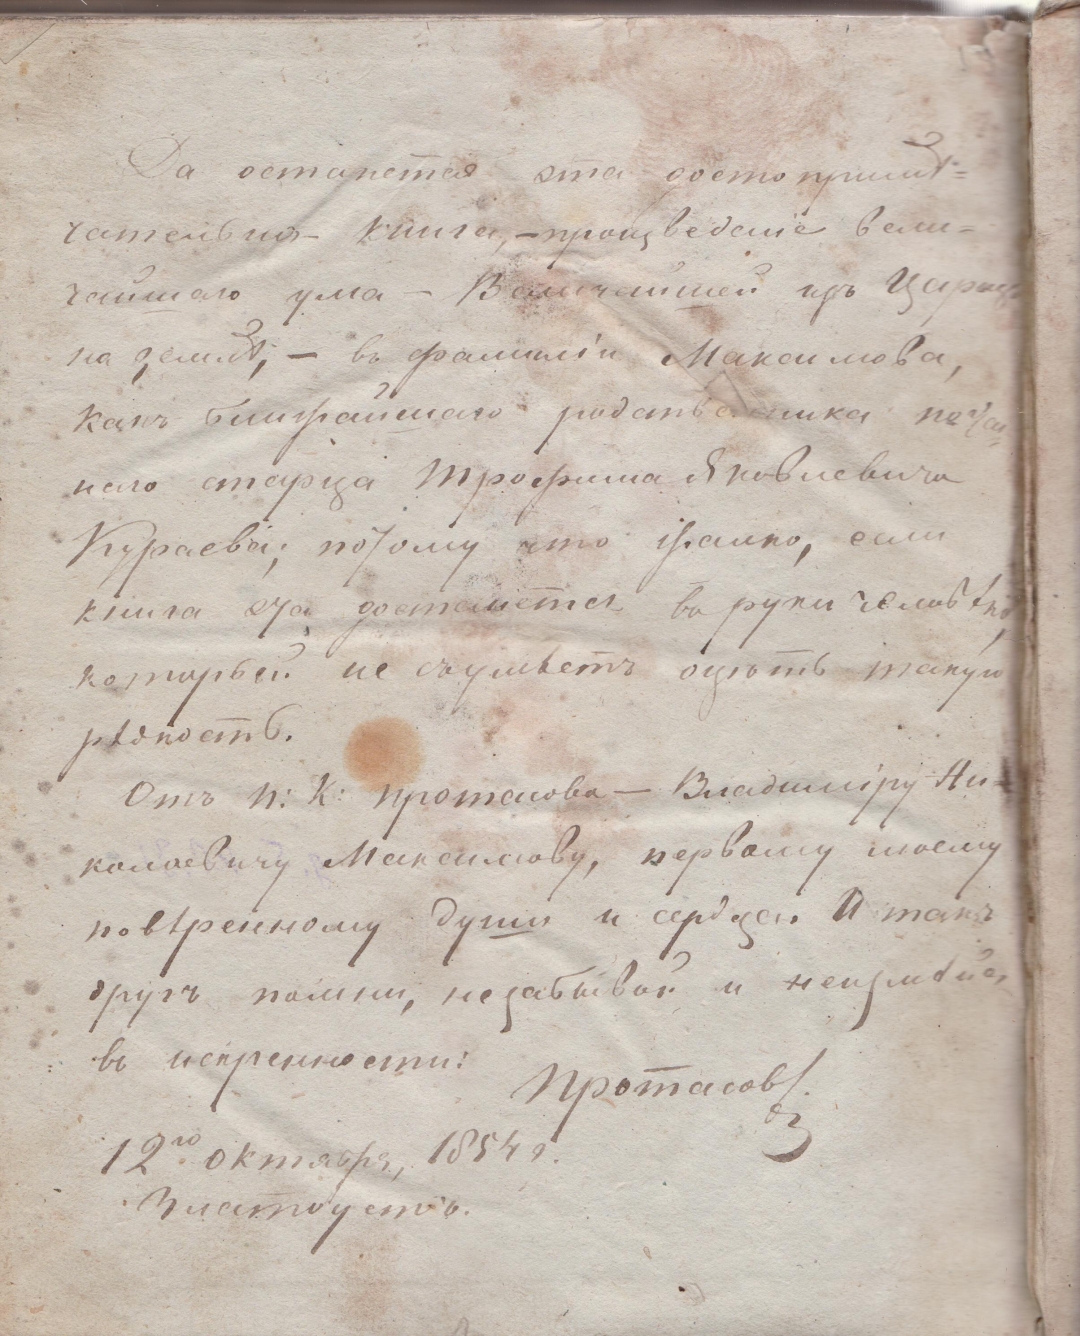 Да останется эта достопримѣ=
чательная книга, – произведеніе вели=
чайшаго ума – Величайшей изъ Царицъ
на землѣ, – въ фамиліи Максимова,
какъ ближайшаго родственника почтен=
наго старца Трофима Яковлевича
Кураева; потому что жалко, если
книга эта достанется въ руки человѣка,
который не съумѣетъ оцѣнить такую
рѣдкость.
Отъ П: К: Протасова – Владиміру Ни-
колаевичу Максимову, первому моему
повѣренному души и сердца. И такъ
другъ помни, незабывай и неизмѣняй
въ искренности:
Протасовъ.
12го октября, 1854 г.
Златоустъ.